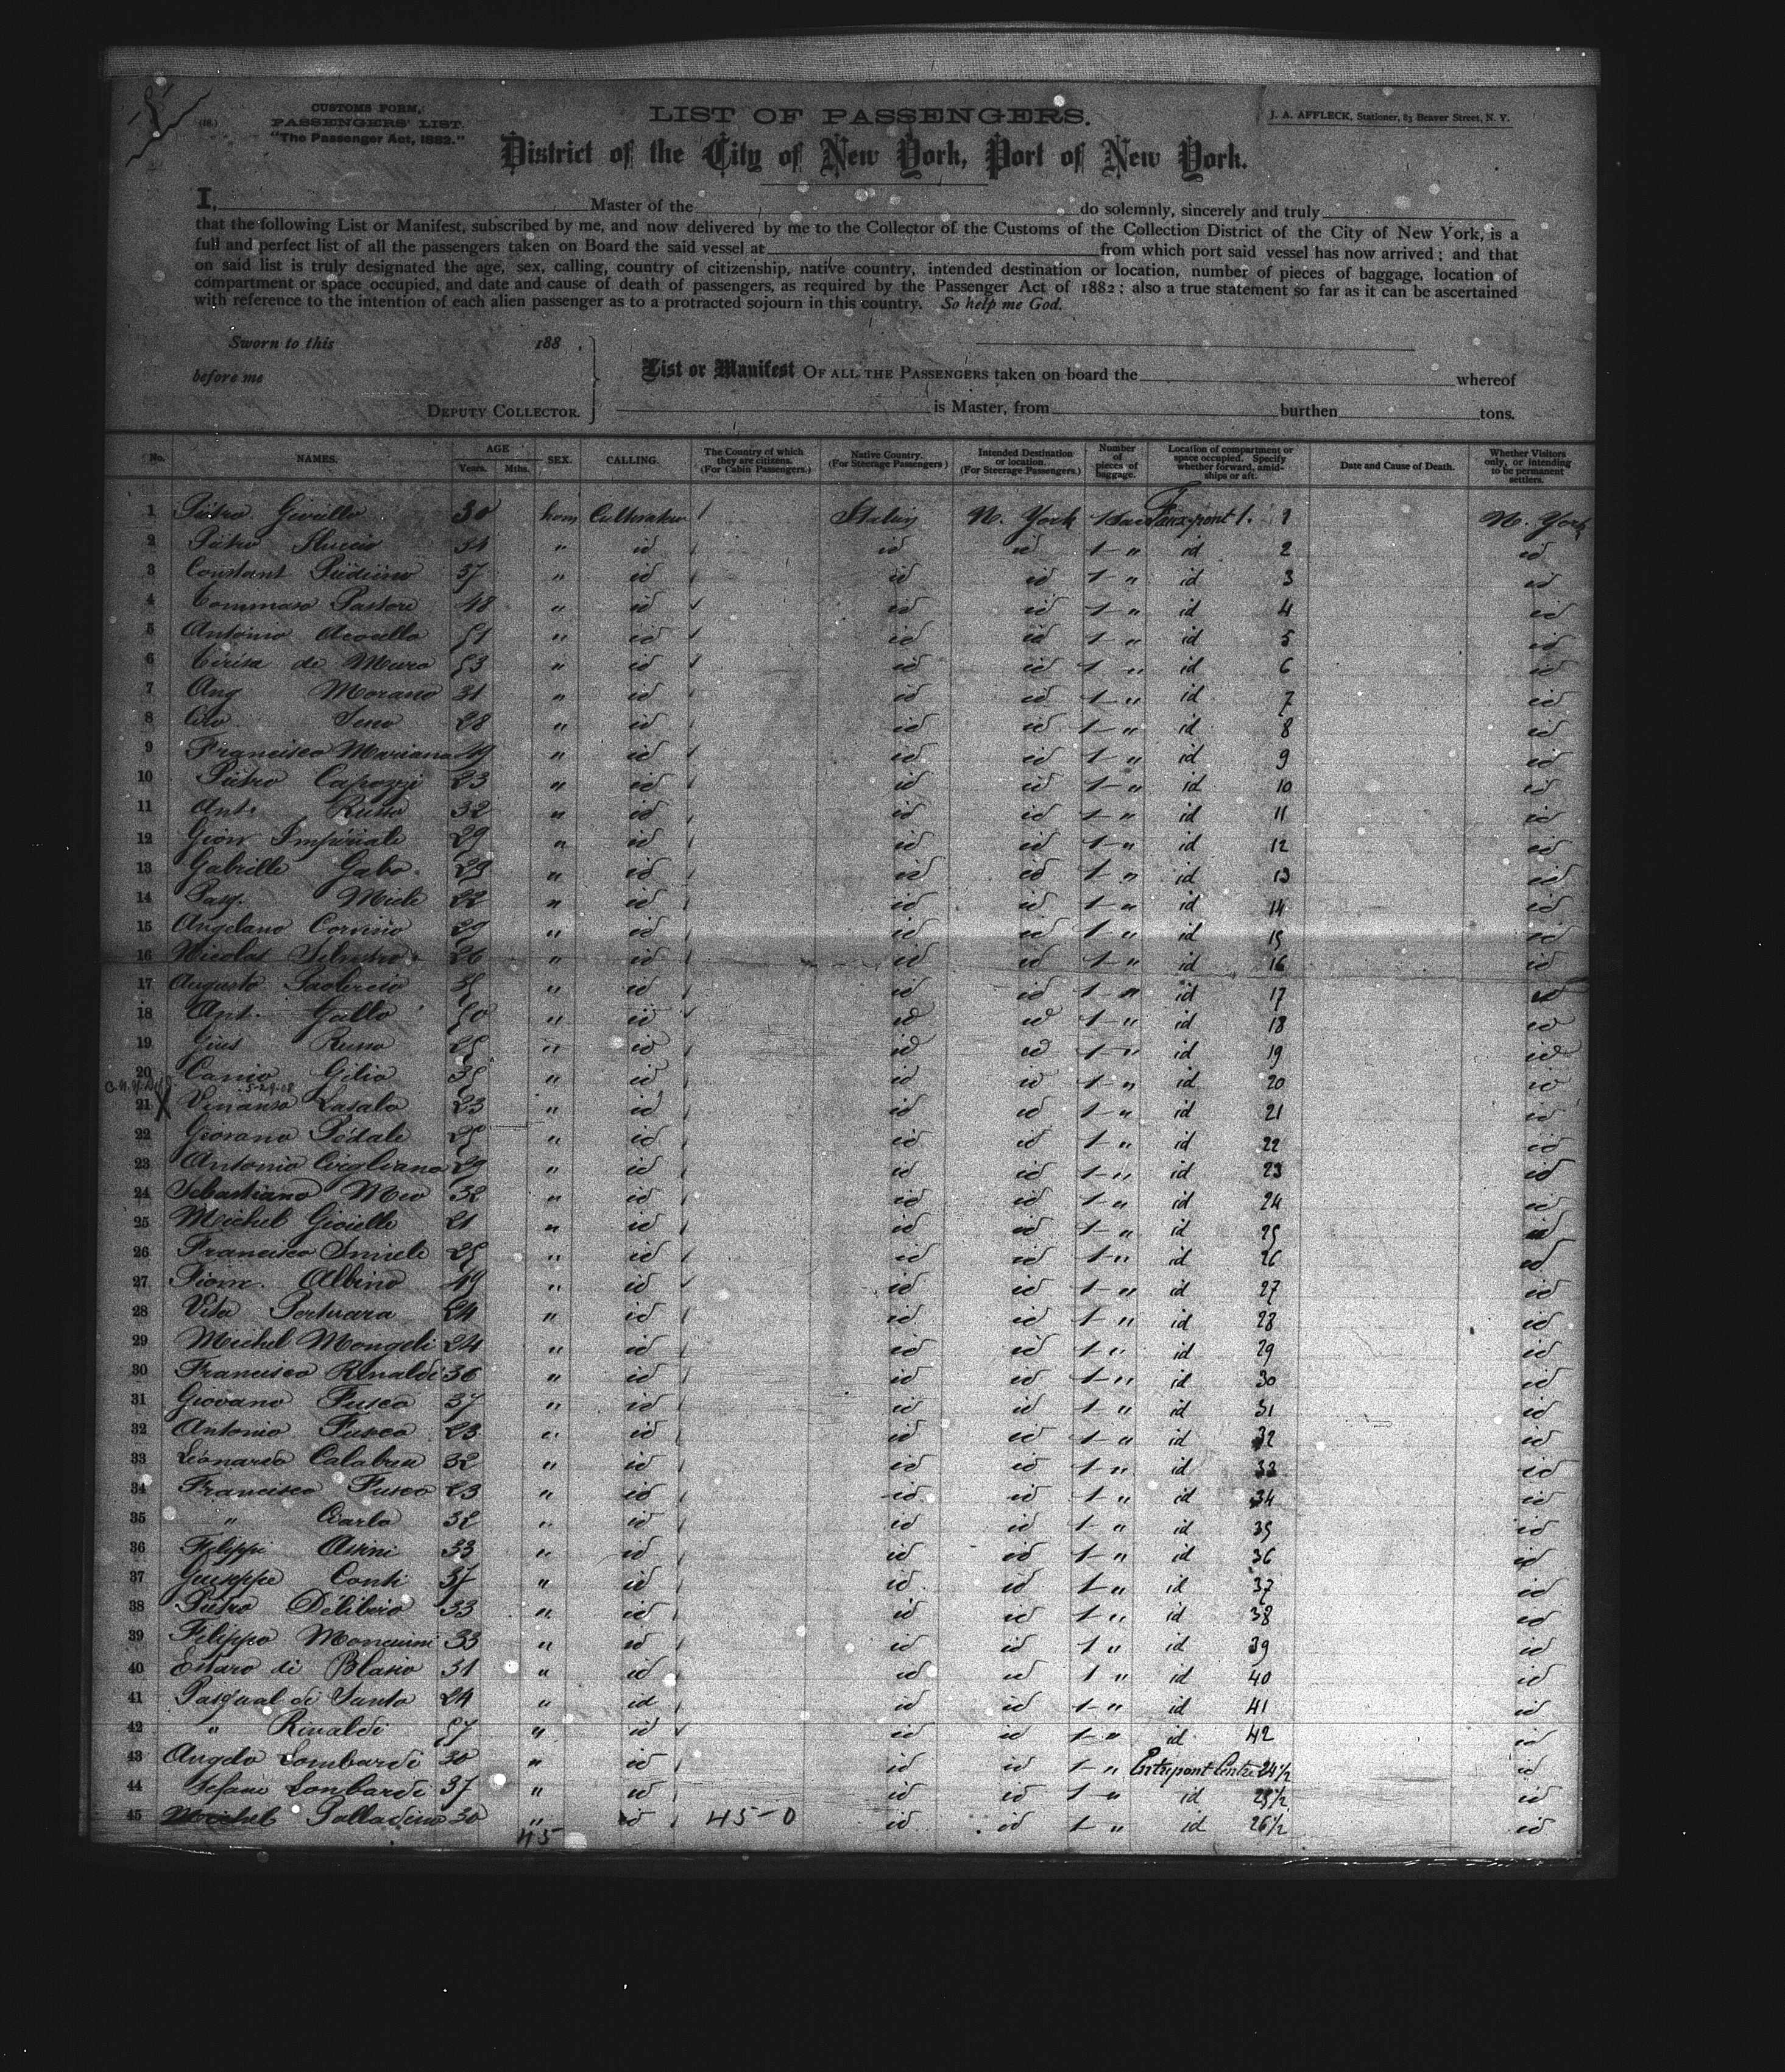 (18.)
CUSTOMS FORM,
PASSENGERS' LIST.
"The Passenger Act, 1882."
LIST OF PASSENGERS.
J. A. AFFLECK, Stationer, 83 Beaver Street, N. Y.
District of the City of New York, Port of New York.
I, Master of the do solemnly, sincerely and truly
that the following List or Manifest, subscribed by me, and now delivered by me to the Collector of the Customs of the Collection District of the City of New York, is a
full and perfect list of all the passengers taken on Board the said vessel at from which port said vessel has now arrived; and that
on said list is truly designated the age, sex, calling, country of citizenship, native country, intended destination or location, number of pieces of baggage, location of
compartment or space occupied, and date and cause of death of passengers, as required by the Passenger Act of 1882; also a true statement so far as it can be ascertained
with reference to the intention of each alien passenger as to a protracted sojourn in this country. So help me God.
Sworn to this 188 .
before me
DEPUTY COLLECTOR.
List or Manifest OF ALL THE PASSENGERS taken on board the whereof
is Master, from burthen tons.
No. NAMES. AGE Years. Mths. SEX. CALLING. The Country of which they are citizens. (For Cabin Passengers.) Native Country. (For Steerage Passengers) Intended Destination or location. (For Steerage Passengers.) Number of pieces of baggage. Location of compartment or space occupied. Specify whether forward, amid-ships or aft. Date and Cause of Death. Whether Visitors only, or intending to be permanent settlers.
1 Pietro 30 hom Cultivateur N. York 1 1 N. York
2 Pietro 31 " id id id 1 " id 2 id
3 Constant 37 " id id id 1 " id 3 id
4 Tommaso Pastore 48 " id id id 1 " id 4 id
5 Antonio 51 " id id id 1 " id 5 id
6 de Muro 53 " id id id 1 " id 6 id
7 Ang Morano 31 " id id id 1 " id 7 id
8 28 " id id id 1 " id 8 id
9 Francisco Mariano 49 " id id id 1 " id 9 id
10 Pietro Capozzi 23 " id id id 1 " id 10 id
11 Ant. Russo 32 " id id id 1 " id 11 id
12 Giov Imperiale 29 " id id id 1 " id 12 id
13 Gabrille Gabo 29 " id id id 1 " id 13 id
14 Pasq. Miele 22 " id id id 1 " id 14 id
15 Angelano Corvino 29 " id id id 1 " id 15 id
16 Nicolas 26 " id id id 1 " id 16 id
17 Augusto 35 " id id id 1 " id 17 id
18 Ant. Gallo 50 " id id id 1 " id 18 id
19 Gius Russo 25 " id id id 1 " id 19 id
20 Canio Gilio 35 " id id id 1 " id 20 id
5-29-08
21 X Lasala 23 " id id id 1 " id 21 id
22 Giovano Pedale 25 " id id id 1 " id 22 id
23 Antonio Cirigliano 29 " id id id 1 " id 23 id
24 Sebastiano Meo 32 " id id id 1 " id 24 id
25 Michel Gioielle 21 " id id id 1 " id 25 id
26 Francisco 25 " id id id 1 " id 26 id
27 Albino 49 " id id id 1 " id 27 id
28 Vito 24 " id id id 1 " id 28 id
29 Michel Mongeli 24 " id id id 1 " id 29 id
30 Francisco Rinaldi 36 " id id id 1 " id 30 id
31 Giovano Fusco 37 " id id id 1 " id 31 id
32 Antonio Fusco 23 " id id id 1 " id 32 id
33 Léonardo Calabrea 32 " id id id 1 " id 33 id
34 Francisco Fusco 23 " id id id 1 " id 34 id
35 " Carlo 32 " id id id 1 " id 35 id
36 Filippi 33 " id id id 1 " id 36 id
37 Guiseppe Conti 37 " id id id 1 " id 37 id
38 Pietro 33 " id id id 1 " id 38 id
39 Filippo 33 " id id id 1 " id 39 id
40 di Blasio 31 " id id id 1 " id 40 id
41 Pasqual di Santo 24 " id id id 1 " id 41 id
42 " Rinaldi 57 " id id id 1 " id 42 id
43 Angelo Lombardi 30 " id id id 1 " Entrepont Centre 24 1/2 id
44 Stefano Lombardi 37 " id id id 1 " id 25 1/2 id
45 Michel Palladino 30 " id 45-0 id id 1 " id 26 1/2 id
45